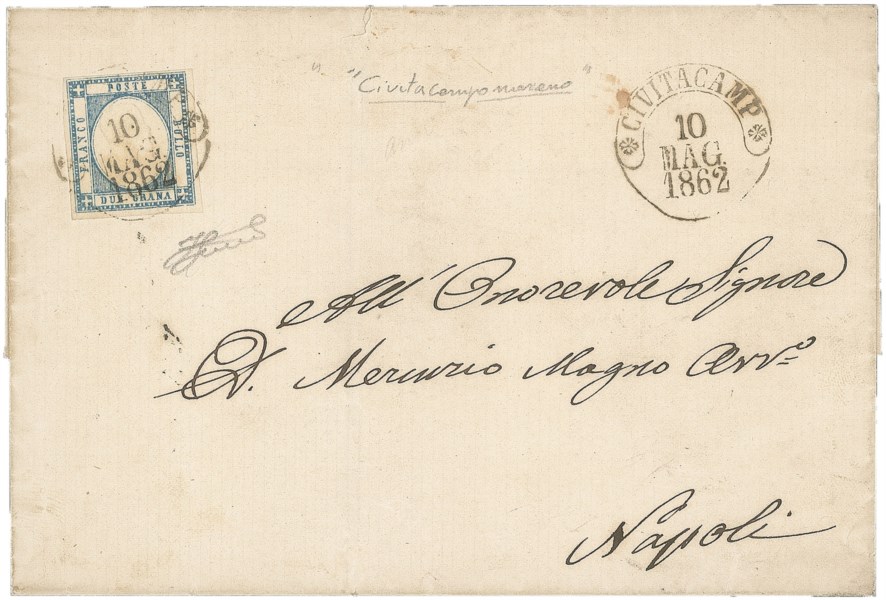 "Civitacampomarano"
POSTE
FRANCO
BOLLO
DUE GRANA
10
MAG.
1862
CIVITACAMP
10
MAG.
1862
All' Onorevole Signore
D. Mercurio Magno Avv.o
Napoli